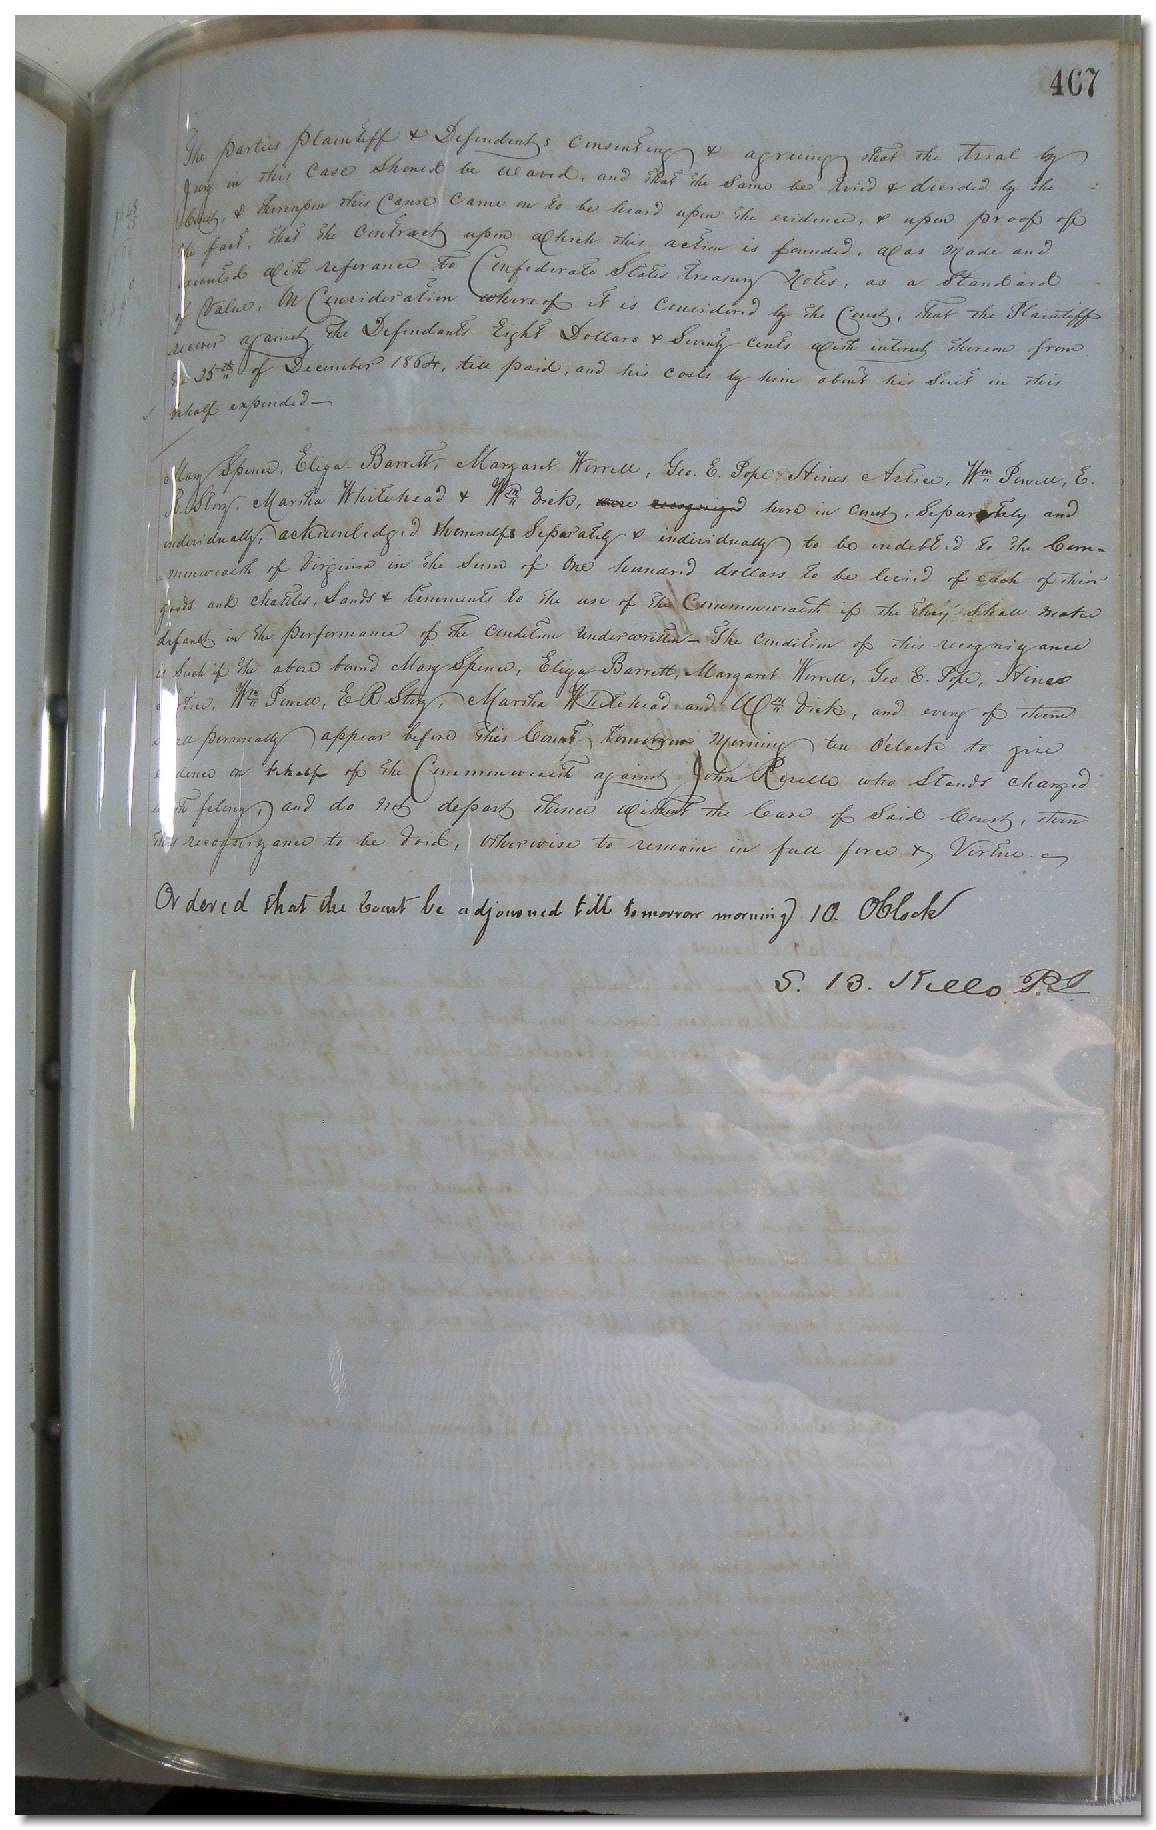 467
The parties Plaintiff & Defendants consenting & agreeing that the trial by
Jury in this case should be waved, and that the same be tried & decided by the
Court, & thereupon this cause came on to be heard upon the evidence, & upon proof of
the fact, that the contract upon which this action is founded, was made and
executed with referance to Confederate States Treasury Notes, as a Standard
of Value. On Consideration whereof it is considered by the Court, that the Plaintiff
recover against the Defendants Eight Dollars & Seventy cents with interest thereon from
the 25th of December 1864, till paid, and his costs by him about his suit in this
behalf expended—
Mary Spence, Eliza Barrett, Margaret Worrell, Geo. E. Pope, Hines Artice, Wm Powell, E.
R. Story, Martha Whitehead & Wm Dick, were recognized here in court, Separately and
individually, acknowledged themselfs Separately & individually to be indebted to the Com-
monwealth of Virginia in the Sum of One hundred dollars to be levied of each of their
goods and chattles, Lands & tenements to the use of the Commonwealth if the they shall make
default in the performance of the condition underwritten— The condition of this recognizance
is such if the above bound Mary Spence, Eliza Barrett, Margaret Worrell, Geo E. Pope, Hines
Artice, Wm Powell, E R Story, Martha Whitehead and Wm Dick, and every of them
personally appear before this Court tomorrow Morning ten Oclock to give
evidence on behalf of the Commonwealth against John who Stands charged
with felony, and do not depart thence without the leave of Said Court, then
this recognizance to be Void, otherwise to remain in full force & Virtue.
Ordered that the Court be adjourned till tomorrow morning 10. Oclock
S. B. Kello P.J